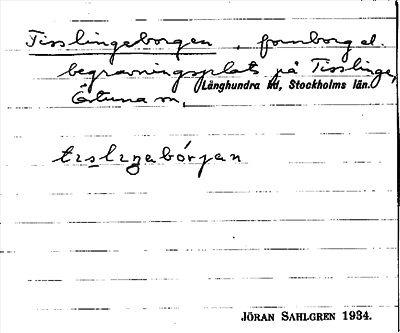 Tisslingeborgen, fornborg el.
begravningsplats på Tisslinge,
Långhundra hd, Stockholms län.
Östuna sn,
tɪslɪŋabórjan
JÖRAN SAHLGREN 1934.